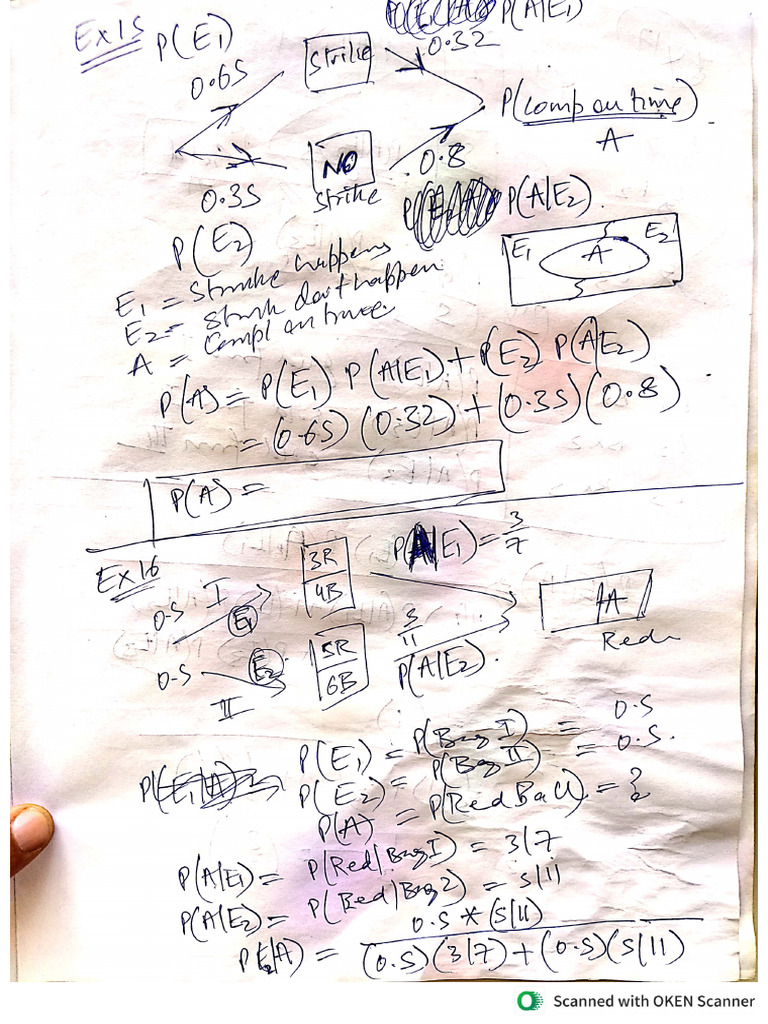 Ex15 P(E₁) P(A|E₁)
0.65 Strike 0.32
P(comp on time)
A
NO
strike
0.35 0.8
P(E₂) P(A|E₂).
E₁ A E₂
E₁ = Strike happens
E₂ = Strik dont happen
A = Compl on time.
P(A) = P(E₁) P(A|E₁) + P(E₂) P(A|E₂)
= (0.65) (0.32) + (0.35) (0.8)
P(A) =
Ex16 P(A|E₁) = 3/7
0.5 I E₁ 3R
4B
A
Red
0.5 II E₂ 5R
6B
P(A|E₂).
P(E₁) = P(Bag I) = 0.5
P(E₂) = P(Bag II) = 0.5.
P(A) = P(Red Ball) = ?
P(A|E₁) = P(Red|Bag I) = 3/7
P(A|E₂) = P(Red|Bag 2) = 5/11
P(E₂|A) = 0.5 * (5/11)
(0.5)(3/7) + (0.5)(5/11)
Scanned with OKEN Scanner